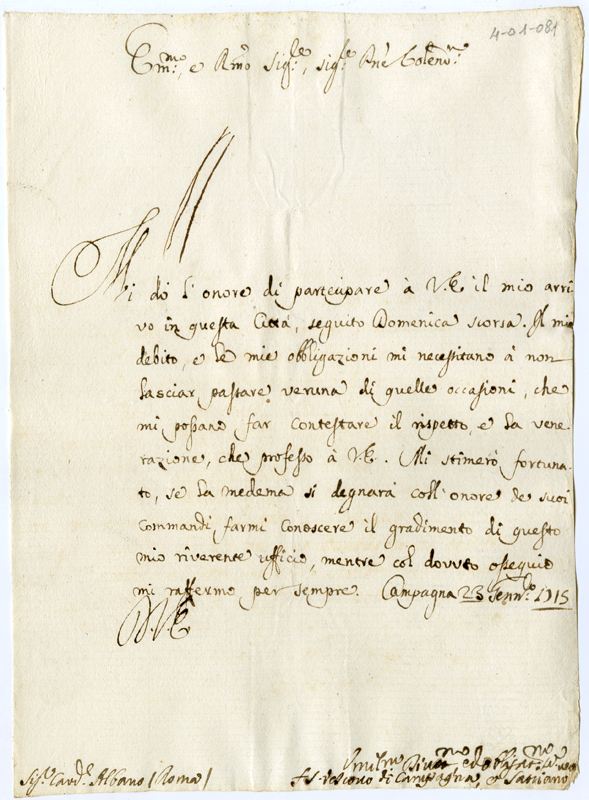 4-01-081
Em.mo, e R.mo Sig.re, sig.re P.ne Col.en.mo
Mi dò l'onore di partecipare à V.E. il mio arri
vo in questa Città, seguito Domenica scorsa. Il mio
debito, e le mie obbligazioni mi necessitano à non
lasciar passare veruna di quelle occasioni, che
mi possano far contestare il rispetto, e la vene-
razione, che professo à V.E. Mi stimerò fortuna-
to, se la medema si degnarà coll'onore de suoi
commandi farmi conoscere il gradimento di questo
mio riverente ufficio, mentre col dovuto ossequio
mi raffermo per sempre. Campagna 23 Genn.o 1715
D.V.E.
Sig.r Card.l Albano (Roma)
Umil.mo Div.mo, ed obblig.at.mo
Vescovo di Campagna, e Satriano